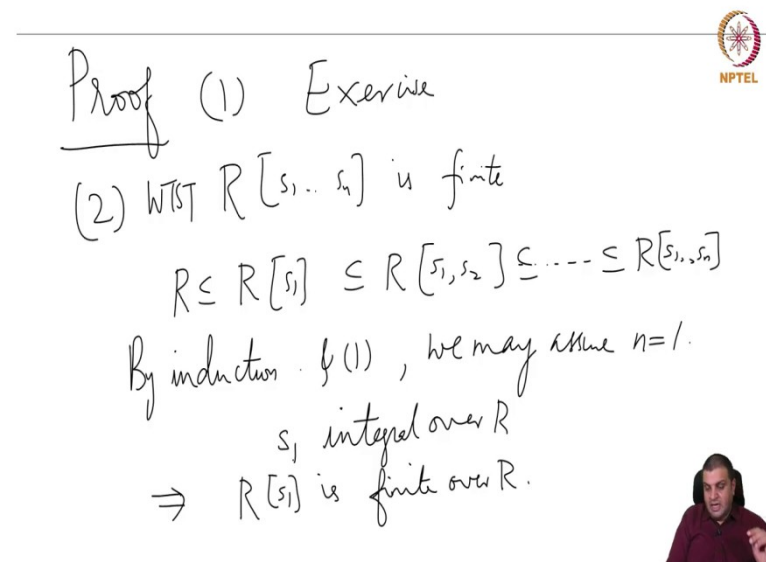 NPTEL
Proof (1) Exercise
(2) WTST R[s₁.. sₙ] is finite
R ⊆ R[s₁] ⊆ R[s₁,s₂] ⊆ ---- ⊆ R[s₁..,sₙ]
By induction & (1), we may assume n=1.
s₁ integral over R
⇒ R[s₁] is finite over R.